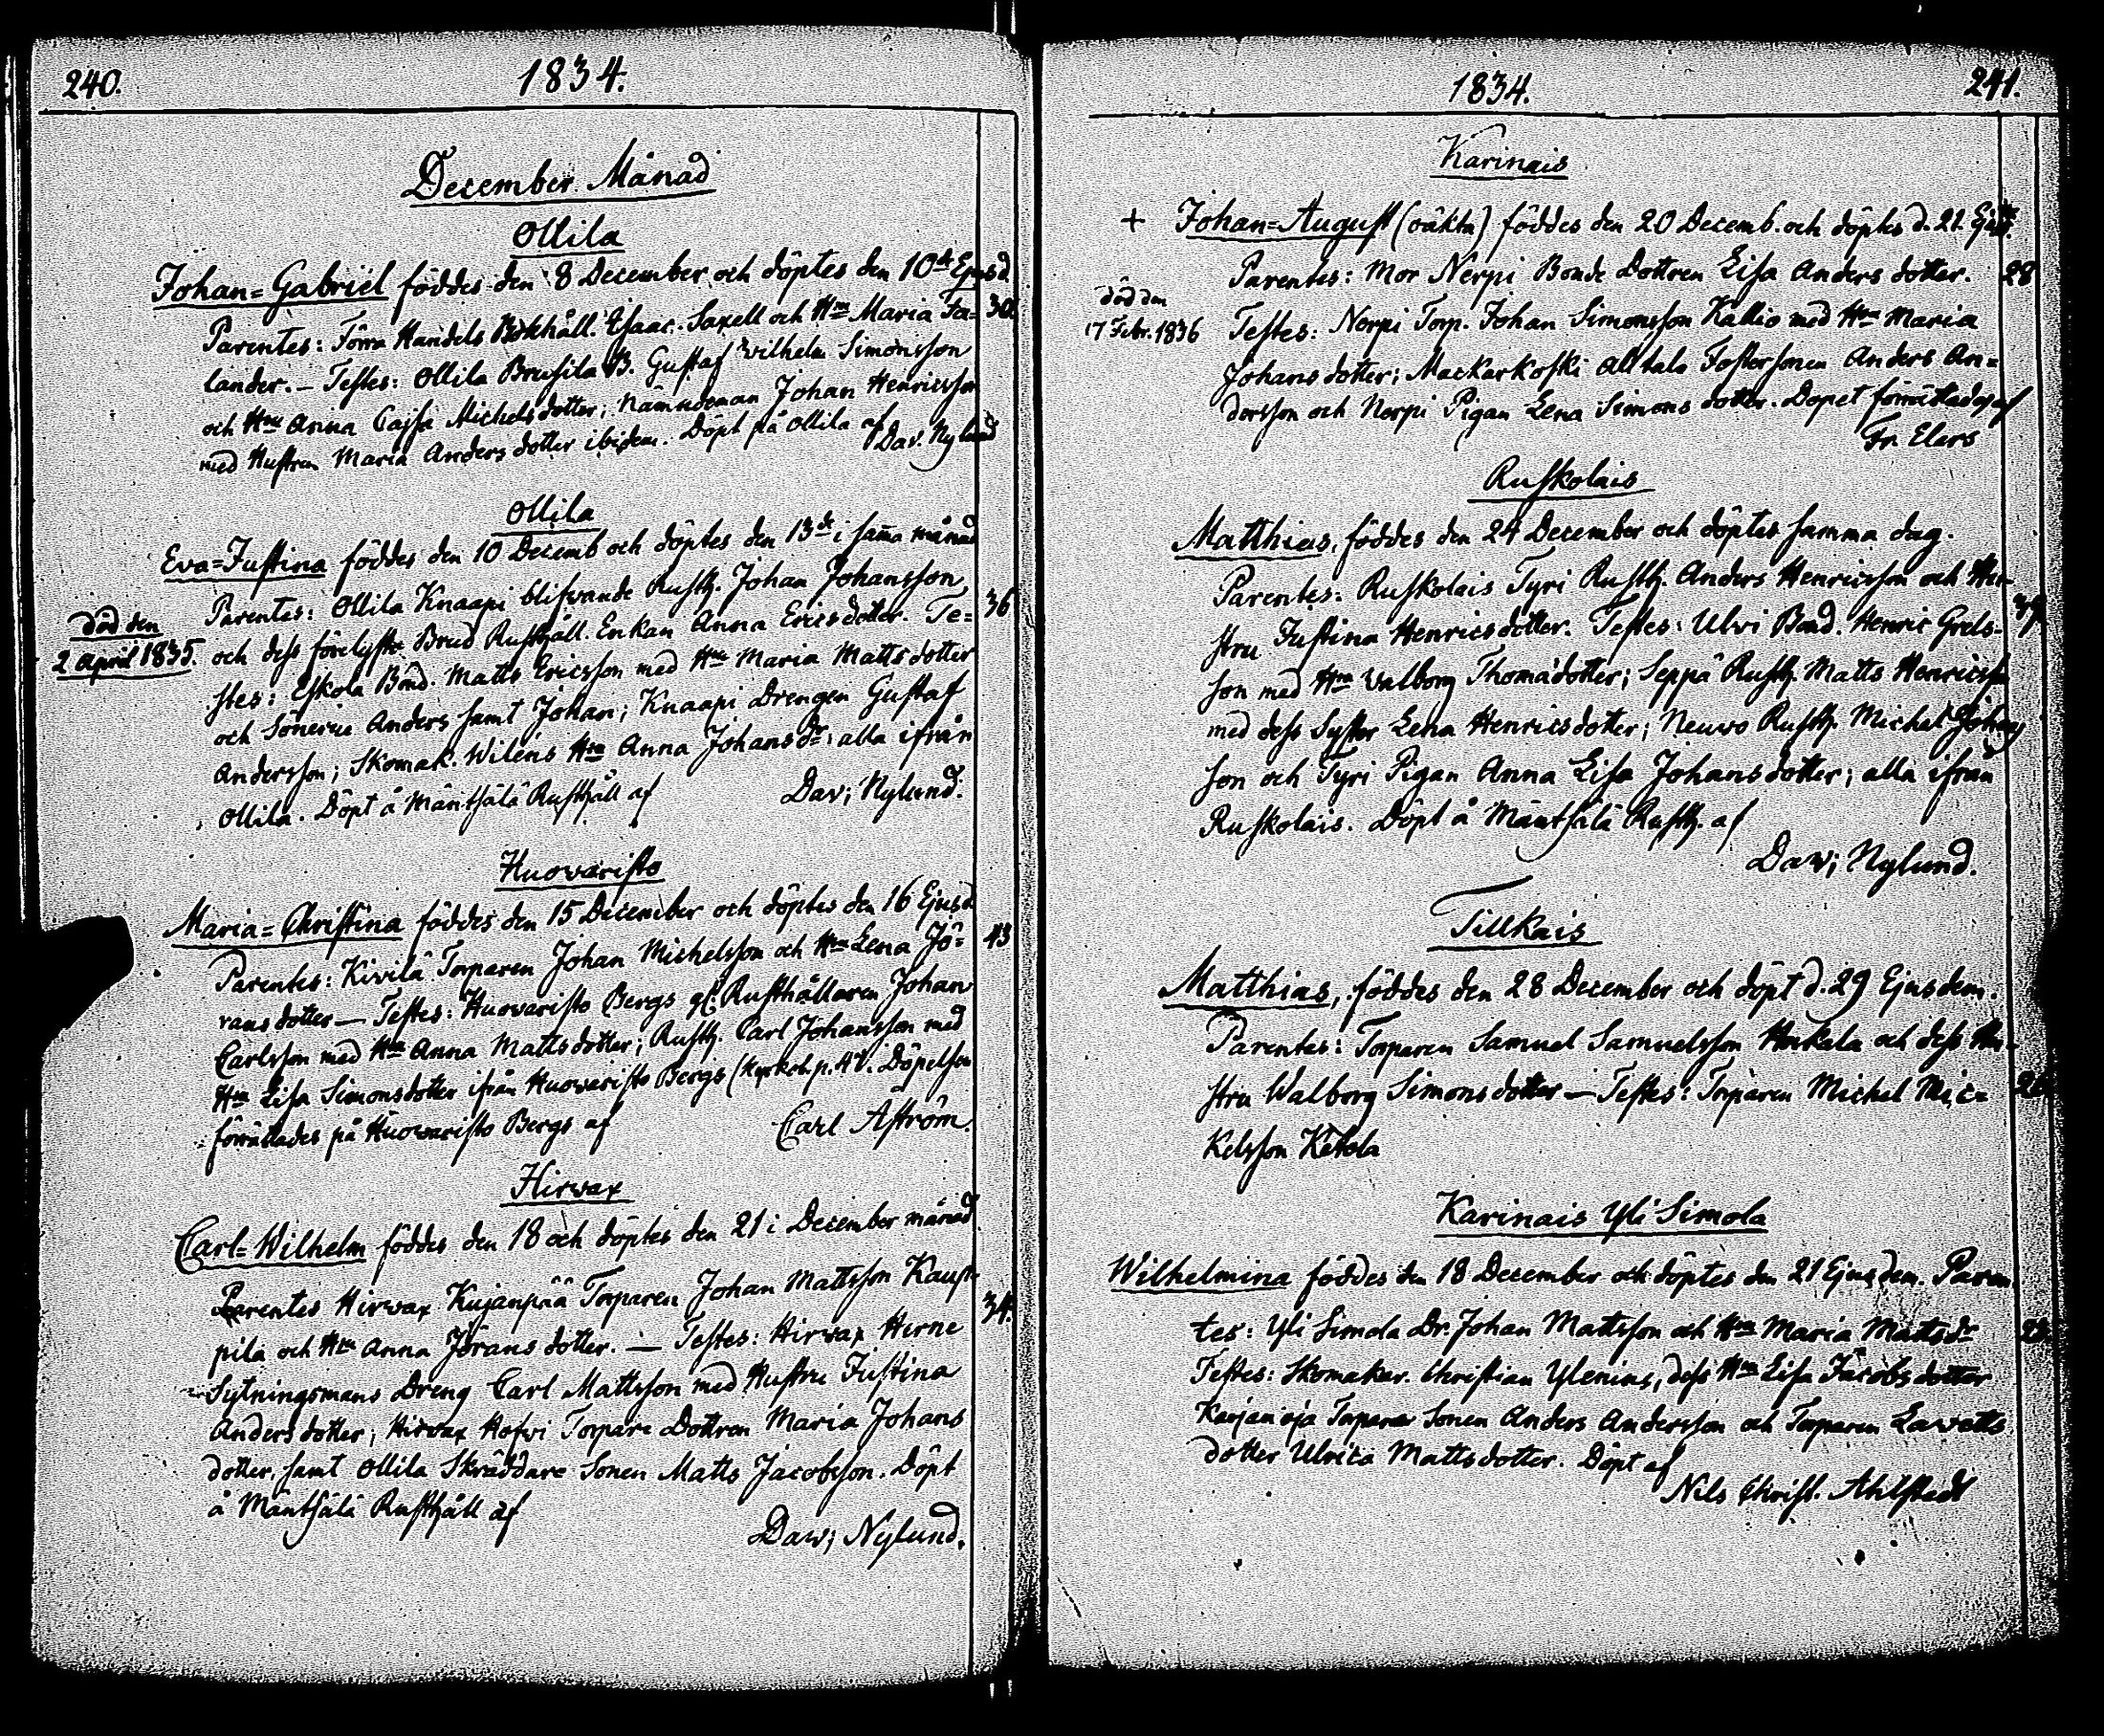 240.
1834.
December Månad
Ollila
Johan=Gabriel föddes den 8 December och döptes den 10de Ejusd
Parentes: Förra Handels Bokhåll. Esaac. Saxell och Hru Maria Fa= 30.
lander. — Testes: Ollila Brusila B. Gustaf Wilhelm Simonsson
och Hru Anna Cajsa Michelsdotter; Nämndeman Johan Henricsson
med Hustrun Maria Anders dotter ibidem. Döpt på Ollila af
Dav. Nylund
Ollila
Eva=Justina föddes den 10 Decemb och döptes den 13de i sama månad
Parentes: Ollila Knaapi blifvande Rusth. Johan Johansson 36
död den
2 April 1835.
och dess förelyste Brud Rusthåll. Enkan Anna Ericsdotter. Te=
stes: Eskola Bond. Matts Ericsson med Hru Maria Matts dotter
och Sönerne Anders samt Johan; Knaapi Drengen Gustaf
Andersson; Skomak. Wilens Hru Anna Johansdr; alla ifrån
Ollila. Döpt å Mäntsälä Rusthåll af Dav; Nylund.
Huovaristo
Maria=Christina föddes den 15 December och döptes den 16 Ejusd
Parentes: Kivilä Torparen Johan Michelsson och Hru Lena Jö= 43
rans dotter — Testes: Huovaristo Bergs gl. Rusthållaren Johan
Carlsson med Hru Anna Mattsdotter; Rusth. Carl Johansson med
Hru Lisa Simonsdotter ifrån Huovaristo Bergs (Kyrkob. p. Döpelsen
förrättades på Huovaristo Bergs af Carl Aström.
Hirvax
Carl=Wilhelm föddes den 18 och döptes den 21 i December månad
Parentes Hirvax Kujanpää Torparen Johan Mattsson Kaup= 34.
pila och Hru Anna Jörans dotter. — Testes: Hirvax Herne
Sytningsmans Dreng Carl Mattsson med Hustru Justina
Anders dotter; Hirvax Hofvi Torpare Dottren Maria Johans
dotter, samt Ollila Skräddare Sonen Matts Jacobsson. Döpt
å Mäntsälä Rusthåll af
Daw; Nylund.
1834.
241.
Karinais
+ Johan=August (oäkta) föddes den 20 Decemb. och döptes d. 21. Ejusd.
Parentes: Mor Nerpi Bonde Dottren Lisa Anders dotter. 28
död den
17 Febr. 1836
Testes: Nerpi Torp. Johan Simonsson Kallio med Hru Maria
Johans dotter; Mackarkoski Alltalo Fostersonen Anders An=
dersson och Nerpi Pigan Lena Simons dotter. Dopet förrättades af
Fr. Elers
Ruskolais
Matthias, föddes den 24 December och döptes samma dag.
Parentes: Ruskolais Tyri Rusth. Anders Henricsson och Hu-
stru Justina Henricsdotter. Testes: Ulvi Bond. Henric Grels-
son med Hru Walborg Thomadotter; Seppä Rusth. Matts Henricsson
med dess Syster Lena Henricsdotter; Neuvo Rusth. Michel Johans
son och Tyri Pigan Anna Lisa Johans dotter; alla ifrån
Ruskolais. Döpt å Mäntsälä Rusth. af
Daw; Nylund.
Tillkais
Matthias, föddes den 28 December och döpt d. 29 Ejusdem.
Parentes: Torparen Samuel Samuelsson Horkala och dess Hu-
stru Walborg Simons dotter — Testes: Torparen Michel Mic=
kelsson Ketola
Karinais Yli Simola
Wilhelmina föddes den 18 December och döptes den 21 Ejusdem. Paren
tes: Yli Simola Dr. Johan Mattsson och Hru Maria Mattsdr
Testes: Skomakar. Christian Ylenius, dess Hru Lisa Jacobs dotter
Karjanoja Torpare Sonen Anders Andersson och Torparen
dotter Ulrica Mattsdotter. Döpt af
Nils Christ. Ahlstedt